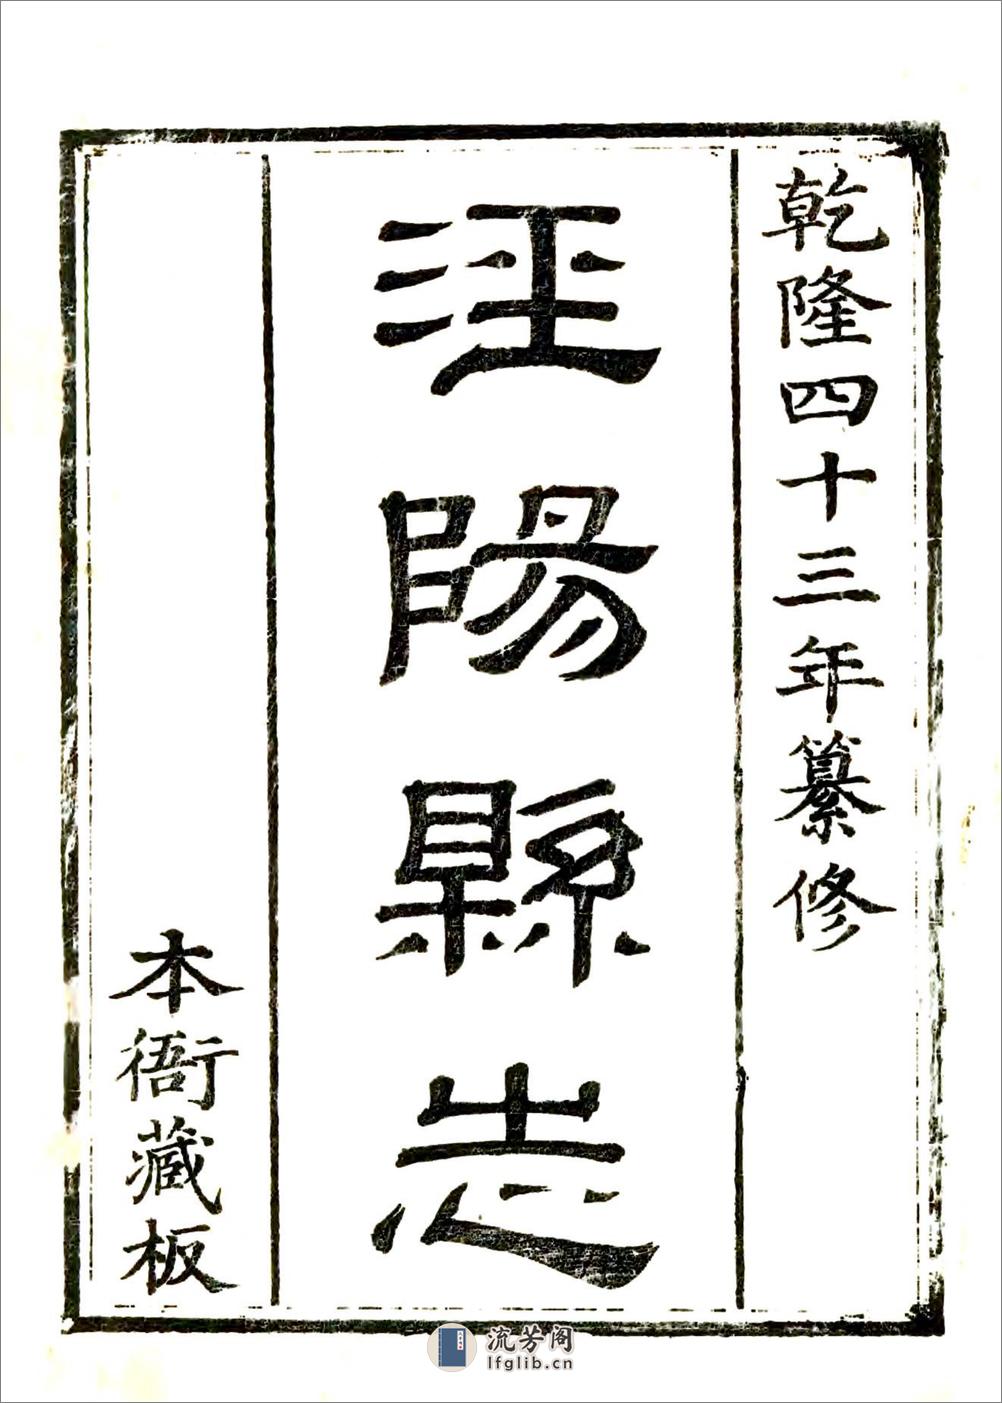 乾隆四十三年纂修
涇陽縣志
本衙藏板
流芳阁
lfglib.cn